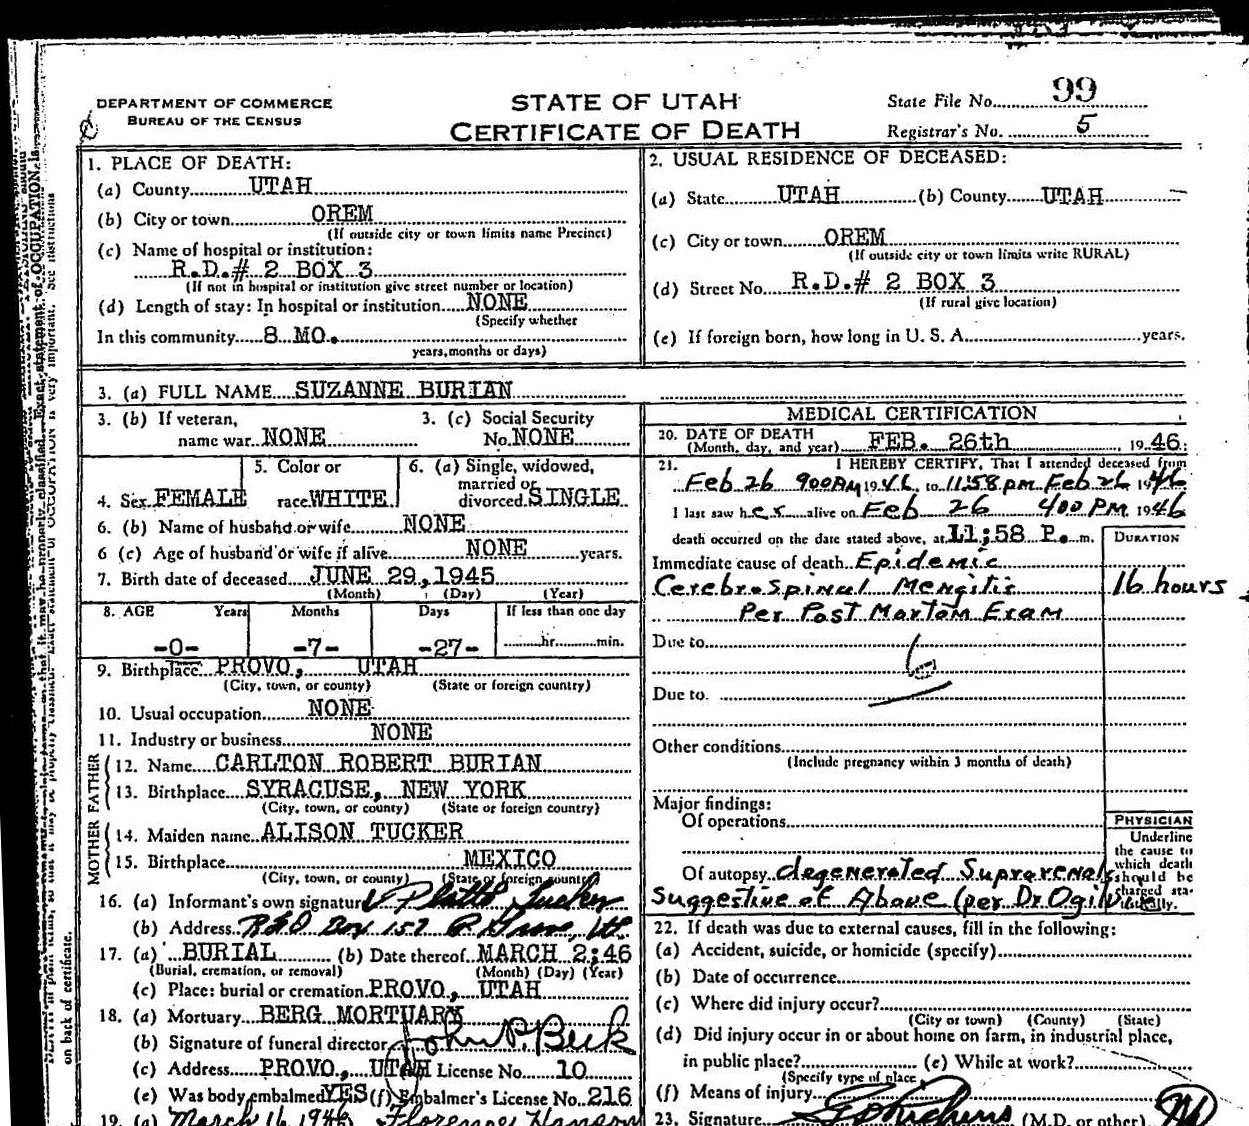 DEPARTMENT OF COMMERCE
BUREAU OF THE CENSUS
STATE OF UTAH
CERTIFICATE OF DEATH
State File No. 99
Registrar's No. 5
1. PLACE OF DEATH:
(a) County UTAH
(b) City or town OREM
(If outside city or town limits name Precinct)
(c) Name of hospital or institution:
R.D.# 2 BOX 3
(If not in hospital or institution give street number or location)
(d) Length of stay: In hospital or institution NONE
(Specify whether
In this community 8 MO.
years, months or days)
2. USUAL RESIDENCE OF DECEASED:
(a) State UTAH (b) County UTAH
(c) City or town OREM
(If outside city or town limits write RURAL)
(d) Street No. R.D.# 2 BOX 3
(If rural give location)
(e) If foreign born, how long in U. S. A. years.
3. (a) FULL NAME SUZANNE BURIAN
3. (b) If veteran, name war NONE
3. (c) Social Security No. NONE
4. Sex FEMALE
5. Color or race WHITE
6. (a) Single, widowed, married or divorced SINGLE
6. (b) Name of husband or wife NONE
6 (c) Age of husband or wife if alive NONE years.
7. Birth date of deceased JUNE 29, 1945
(Month) (Day) (Year)
8. AGE Years Months Days If less than one day
-0- -7- -27- hr. min.
9. Birthplace PROVO, UTAH
(City, town, or county) (State or foreign country)
10. Usual occupation NONE
11. Industry or business NONE
FATHER
12. Name CARLTON ROBERT BURIAN
13. Birthplace SYRACUSE, NEW YORK
(City, town, or county) (State or foreign country)
MOTHER
14. Maiden name ALISON TUCKER
15. Birthplace MEXICO
(City, town, or county) (State or foreign country)
16. (a) Informant's own signature Platte Tucker
(b) Address R#D Box 157 P. Grove, Ut.
17. (a) BURIAL (b) Date thereof MARCH 2;46
(Burial, cremation, or removal) (Month) (Day) (Year)
(c) Place: burial or cremation PROVO, UTAH
18. (a) Mortuary BERG MORTUARY
(b) Signature of funeral director John P. Beck
(c) Address PROVO, UTAH License No. 10
(e) Was body embalmed YES (f) Embalmer's License No. 216
19. (a) March 16 1946 Florence Hanson
MEDICAL CERTIFICATION
20. DATE OF DEATH
(Month, day, and year) FEB. 26th 1946:
21. I HEREBY CERTIFY, That I attended deceased from
Feb 26 900 AM 1946, to 11:58 pm Feb 26 1946
I last saw her alive on Feb 26 400 PM 1946
death occurred on the date stated above, at 11;58 P. m.
DURATION
Immediate cause of death Epidemic
Cerebrospinal Mengitis 16 hours
Per Post Mortom Exam
Due to
Due to
Other conditions
(Include pregnancy within 3 months of death)
Major findings:
Of operations
Of autopsy degenerated Suprarenals
Suggestive of Above (per Dr Ogilvie
PHYSICIAN
Underline
the cause to
which death
should be
charged sta-
tistically.
22. If death was due to external causes, fill in the following:
(a) Accident, suicide, or homicide (specify)
(b) Date of occurrence
(c) Where did injury occur?
(City or town) (County) (State)
(d) Did injury occur in or about home on farm, in industrial place,
in public place? (e) While at work?
(Specify type of place
(f) Means of injury
23. Signature (M.D. or other)
on back of certificate.